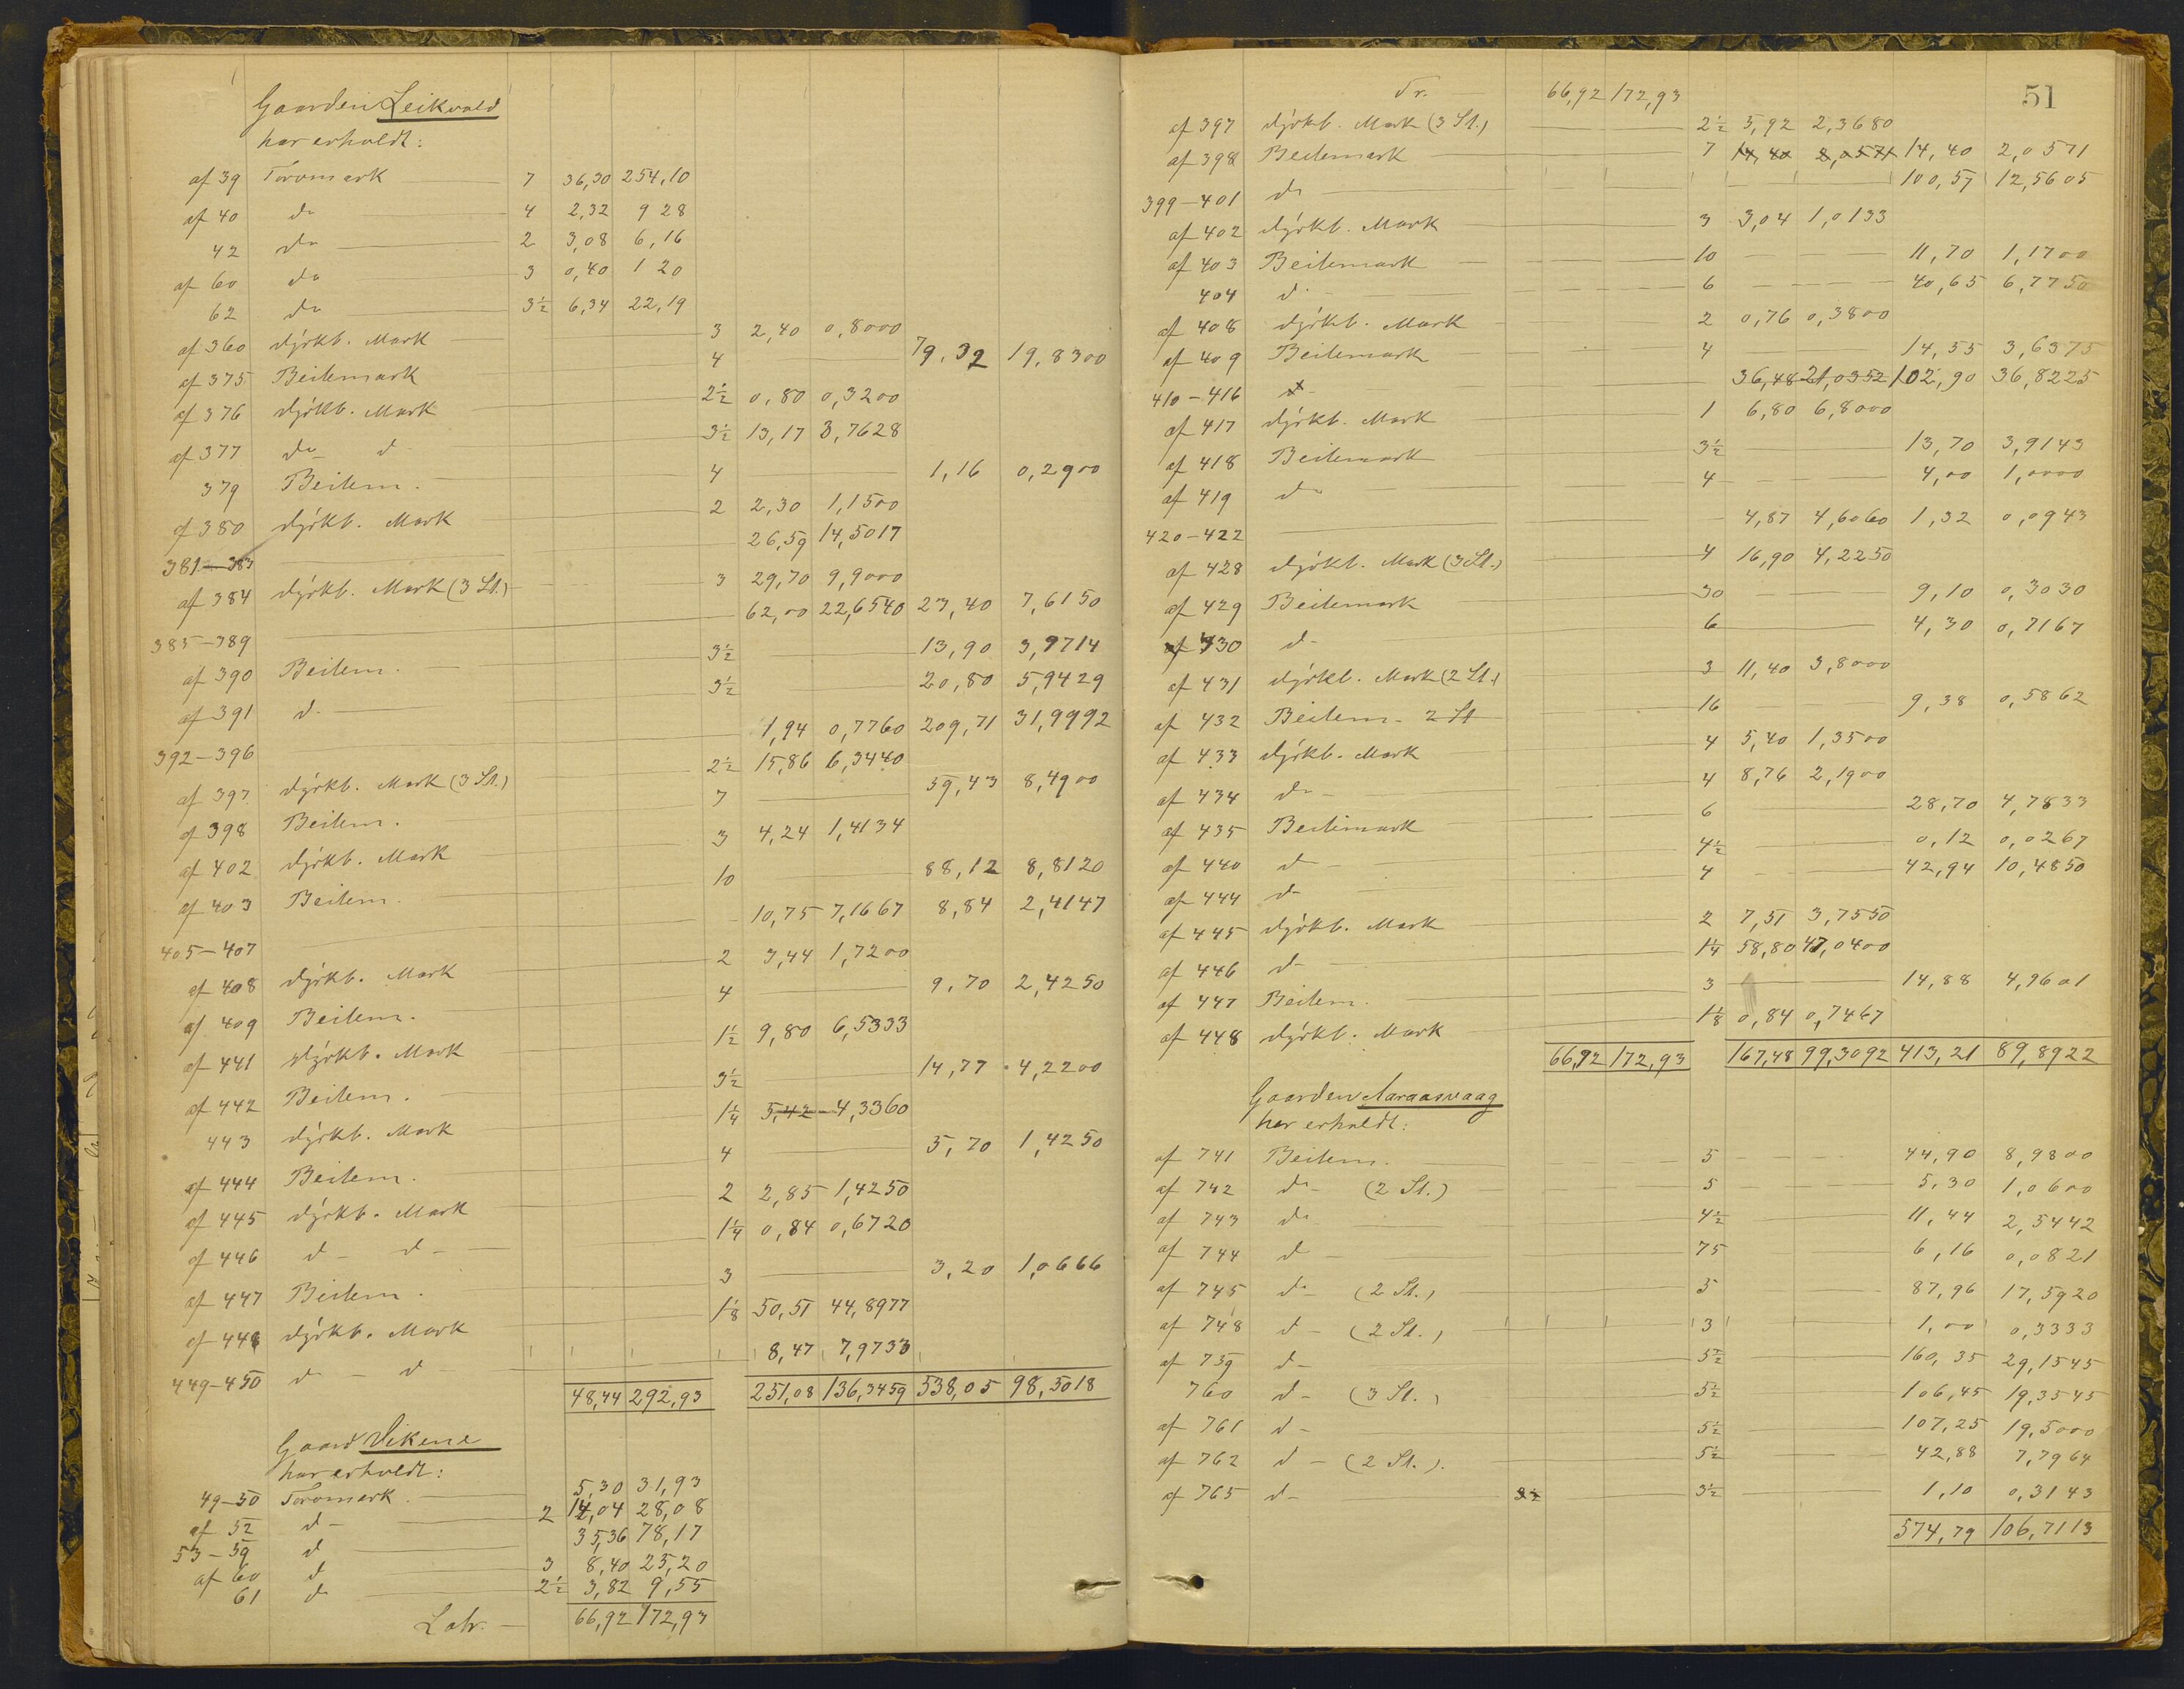 Gaarden Leikvold
har erholdt:
af 39 Torvmark 7 36,30 254,10
af 40 do 4 2,32 9 28
42 do 2 3,08 6,16
af 60 do 3 0,40 1 20
62 do 3½ 6,34 22,19
af 360 dyrkb. Mark 3 2,40 0,8000
af 375 Beitemark 4 79,32 19,8300
af 376 dyrkb. Mark 2½ 0,80 0,3200
af 377 do d- 3½ 13,17 3,7628
379 Beitem. 4 1,16 0,2900
af 380 dyrkb. Mark 2 2,30 1,1500
381-383 26,59 14,5017
af 384 dyrkb. Mark (3 St.) 3 29,70 9,9000
385-389 62,00 22,6540 23,40 7,6150
af 390 Beitem. 3½ 13,90 3,9714
af 391 d. 3½ 20,80 5,9429
392-396 1,94 0,7760 209,71 31,9992
af 397 dyrkb. Mark (3 St.) 2½ 15,86 6,3440
af 398 Beitem. 7 59,43 8,4900
af 402 dyrkb. Mark 3 4,24 1,4134
af 403 Beitem. 10 88,12 8,8120
405-407 10,75 7,1667 8,84 2,4147
af 408 dyrkb. Mark 2 3,44 1,7200
af 409 Beitem. 4 9,70 2,4250
af 441 dyrkb. Mark 1½ 9,80 6,5333
af 442 Beitem. 3½ 14,77 4,2200
443 dyrkb. Mark 1¼ 5,42 4,3360
af 444 Beitem. 4 5,70 1,4250
af 445 dyrkb. Mark 2 2,85 1,4250
af 446 d- d- 1¼ 0,84 0,6720
af 447 Beitem. 3 3,20 1,0666
af 448 dyrkb. Mark 1⅛ 50,51 44,8977
449-450 d- d 8,47 7,9733
48,44 292,93 251,08 136,3459 538,05 98,5018
Gaard Vikene
har erholdt:
49-50 Torvmark. 5,30 31,93
af 52 d- 2 14,04 28,08
53-59 d 35,36 78,17
af 60 d 3 8,40 25,20
61 do 2½ 3,82 9,55
Latr. 66,92 172,93
51
Tr. 66,92 172,93
af 397 dyrkb. Mark (3 St.) 2½ 5,92 2,3680
af 398 Beitemark 7 14,40 2,0571 14,40 2,0571
399-401 do 100,57 12,5605
af 402 dyrkb. Mark 3 3,04 1,0133
af 403 Beitemark 10 11,70 1,1700
404 d. 6 40,65 6,7750
af 408 dyrkb. Mark 2 0,76 0,3800
af 409 Beitemark 4 14,55 3,6375
410-416 36,48 21,0352 102,90 36,8225
af 417 dyrkb. Mark 1 6,80 6,8000
af 418 Beitemark 3½ 13,70 3,9143
af 419 do 4 4,00 1,0000
420-422 4,87 4,6060 1,32 0,0943
af 428 dyrkb. Mark (3 St.) 4 16,90 4,2250
af 429 Beitemark 30 9,10 0,3030
af 430 d- 6 4,30 0,7167
af 431 dyrkb. Mark (2 St.) 3 11,40 3,8000
af 432 Beitem- 2 St 16 9,38 0,5862
af 433 dyrkb. Mark 4 5,40 1,3500
af 434 do- 4 8,76 2,1900
af 435 Beitemark 6 28,70 4,7833
af 440 d- 4½ 0,12 0,0267
af 444 d- 4 42,94 10,4850
af 445 dyrkb. Mark 2 7,51 3,7550
af 446 d- 1¼ 58,80 47,0400
af 447 Beitem. 3 14,88 4,9601
af 448 dyrkb. Mark 1⅛ 0,84 0,7467
66,92 172,93 167,48 99,3092 413,21 89,8922
Gaarden Aaraasvaag
har erholdt:
af 741 Beitem. 5 44,90 8,9800
af 742 do- (2 St.) 5 5,30 1,0600
af 743 do 4½ 11,44 2,5442
af 744 d- 75 6,16 0,0821
af 745 do- (2 St.) 5 87,96 17,5920
af 748 d- (2 St.) 3 1,00 0,3333
af 759 d- 5½ 160,35 29,1545
760 d- (3 St.) 5½ 106,45 19,3545
af 761 d- 5½ 107,25 19,5000
af 762 d- (2 St.). 5½ 42,88 7,7964
af 765 d- 3½ 3½ 1,10 0,3143
574,79 106,7113